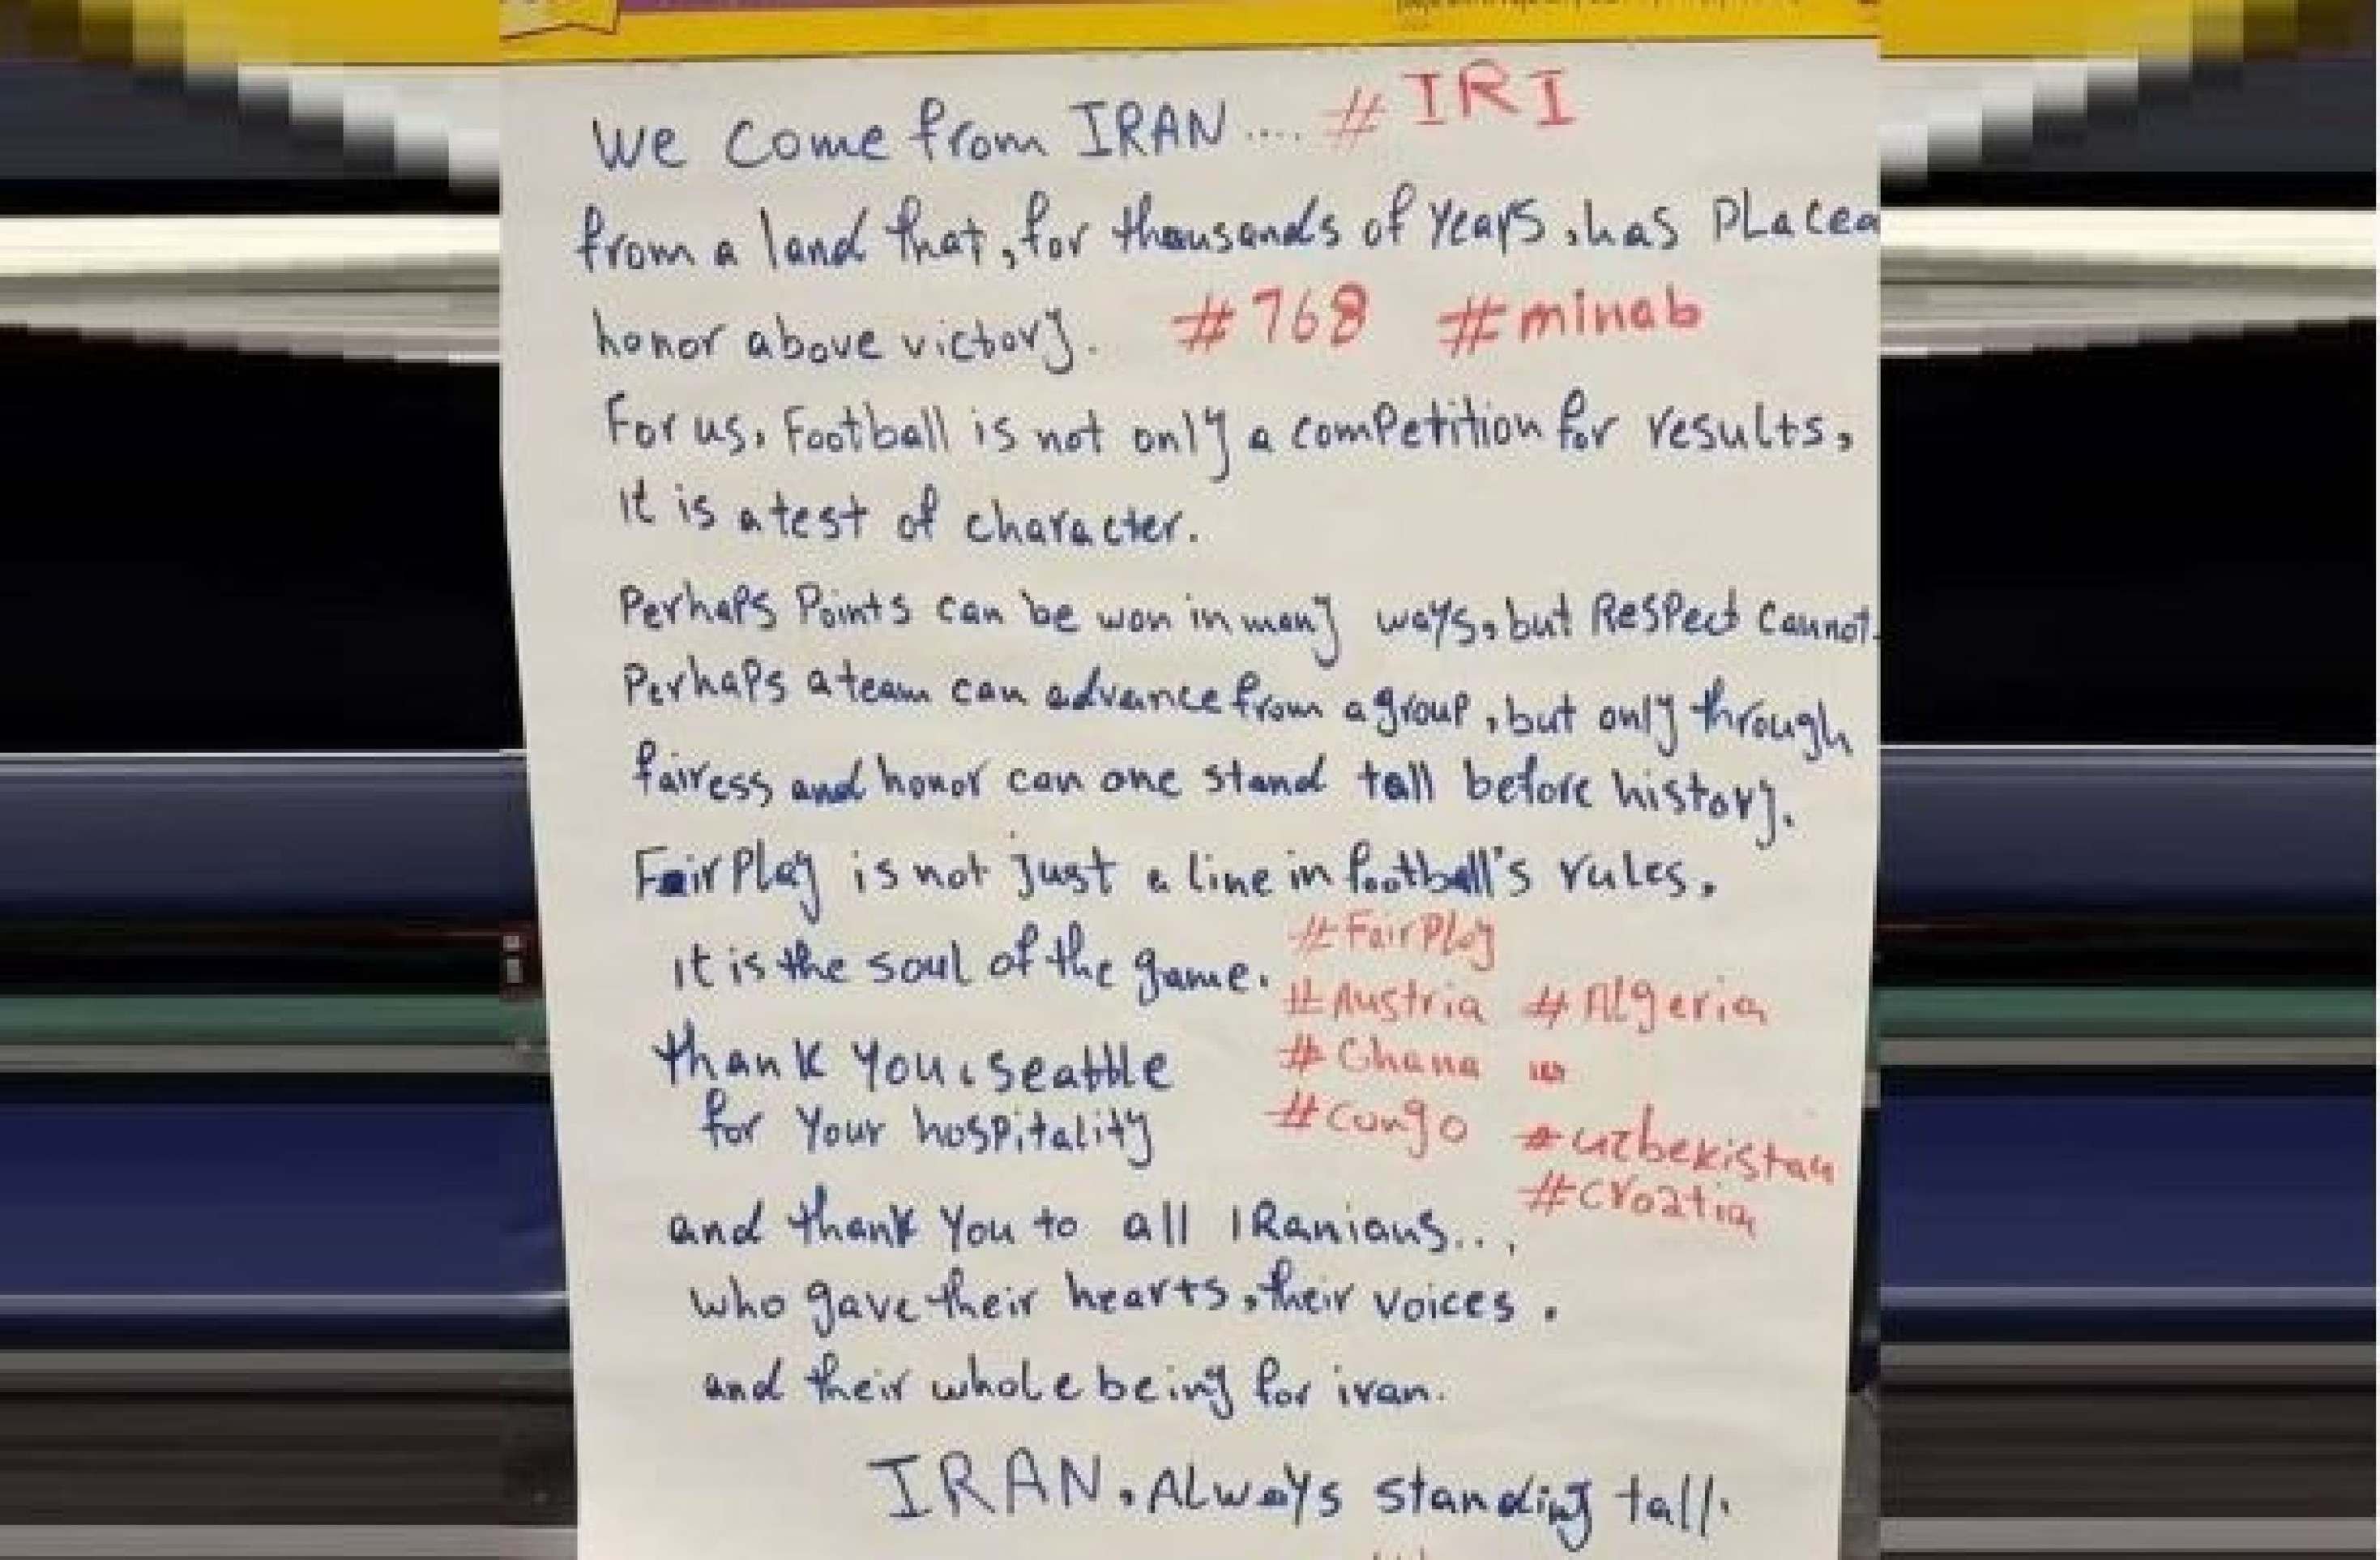 We come from IRAN .... #IRI
from a land that, for thousands of years, has placed
honor above victory. #768 #minab
For us, Football is not only a competition for results,
it is a test of character.
Perhaps Points can be won in many ways, but Respect cannot.
Perhaps a team can advance from a group, but only through
fairess and honor can one stand tall before history.
Fair Play is not just a line in football's rules.
it is the soul of the game. #FairPlay
#Austria #Algeria
thank you, seattle #Ghana
for your hospitality #Congo #uzbekistan
#croatia
and thank you to all IRanians...
who gave their hearts, their voices.
and their whole being for iran.
IRAN. Always standing tall.